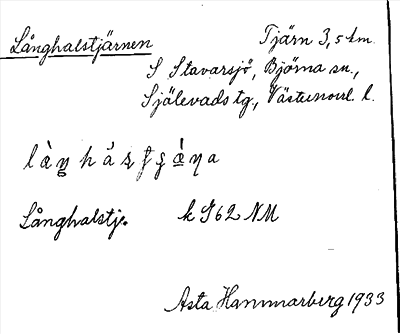 Långhalstjärnen Tjärn 3,5 km
S Stavarsjö, Björna sn.,
Själevads tg, Västernorrl. l.
Långhalstj. k J62 NM
Asta Hammarberg 1933